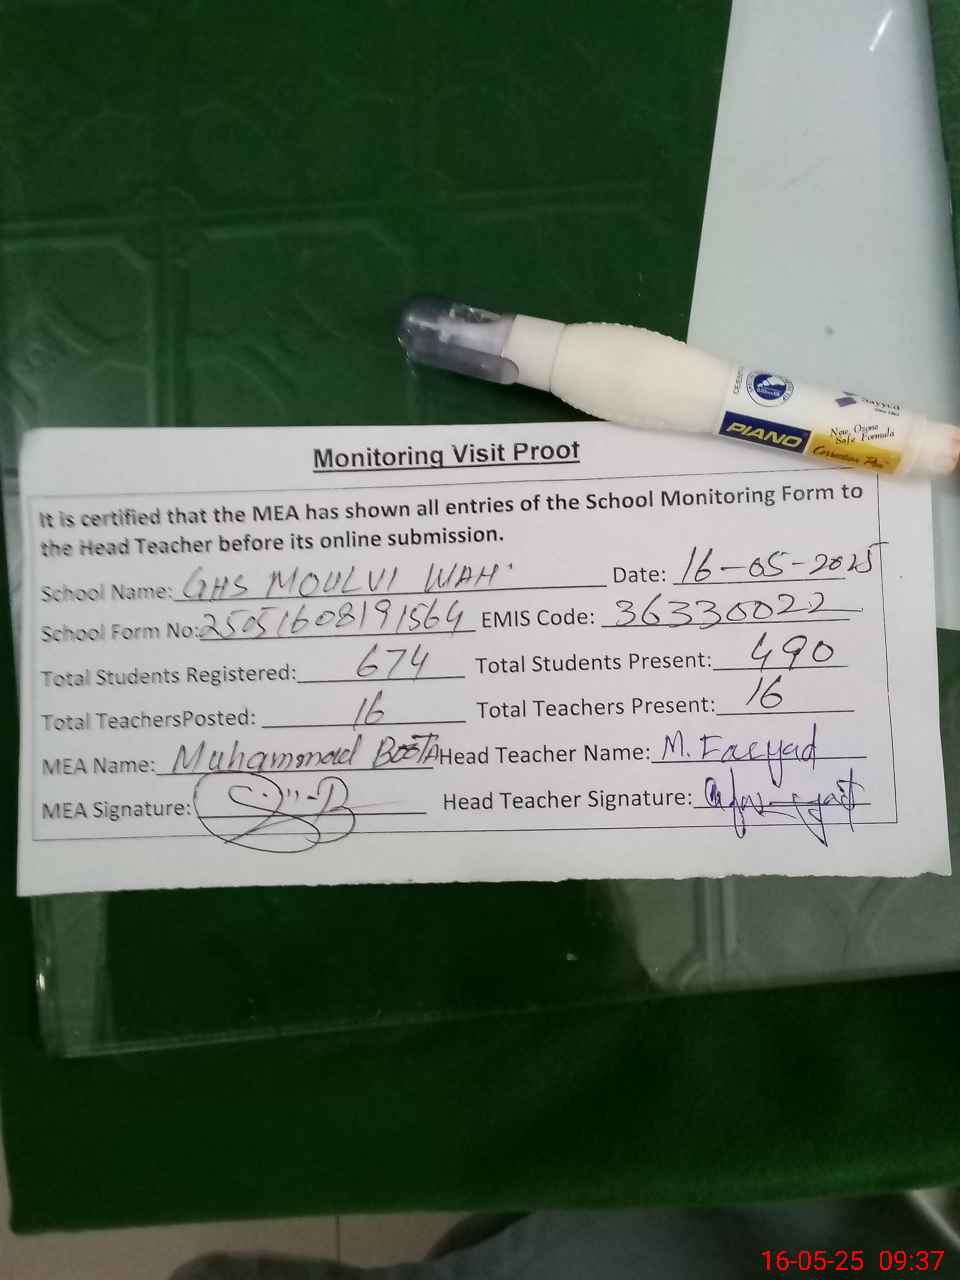 PIANO
New Ozone
Safe Formula
Correction Pen
Monitoring Visit Proof
It is certified that the MEA has shown all entries of the School Monitoring Form to
the Head Teacher before its online submission.
School Name: GHS MOULVI WAH Date: 16-05-2025
School Form No: 25051608191564 EMIS Code: 36330022
Total Students Registered: 674 Total Students Present: 490
Total TeachersPosted: 16 Total Teachers Present: 16
MEA Name: Muhammad BOOTA Head Teacher Name: M. Fayyad
MEA Signature: Head Teacher Signature:
16-05-25 09:37